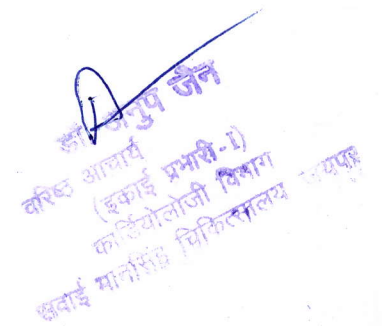 डॉ. अनुप जैन
वरिष्ठ आचार्य
(इकाई प्रभारी-I)
कार्डियोलोजी विभाग
सवाई मानसिंह चिकित्सालय जयपुर